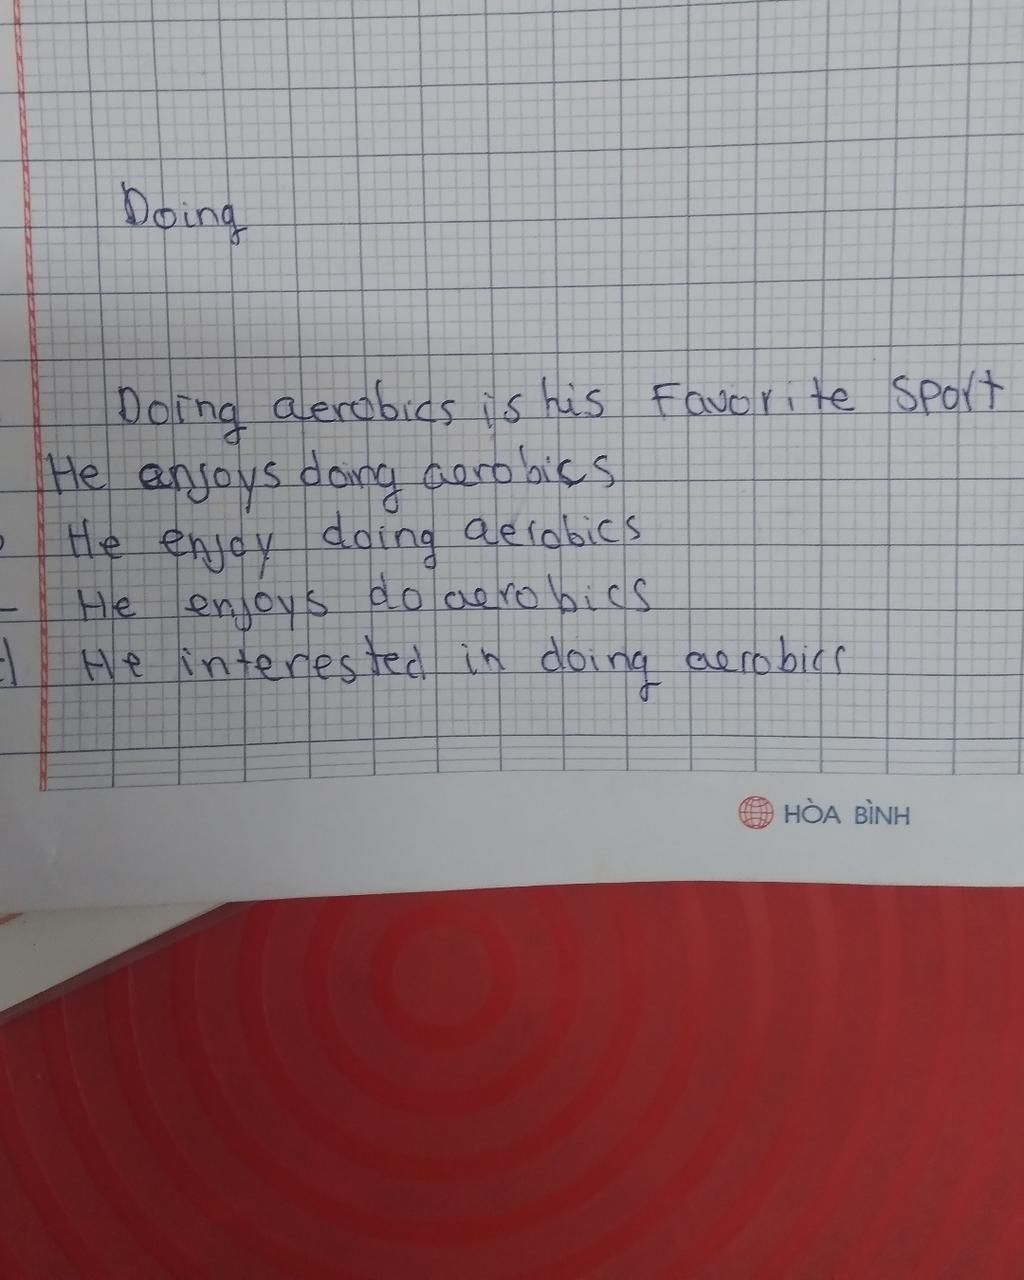 Doing
Doing aerobics is his Favorite Sport
He enjoys doing aerobics
He enjoy doing aerobics
He enjoys do aerobics
He interested in doing aerobics
HÒA BÌNH